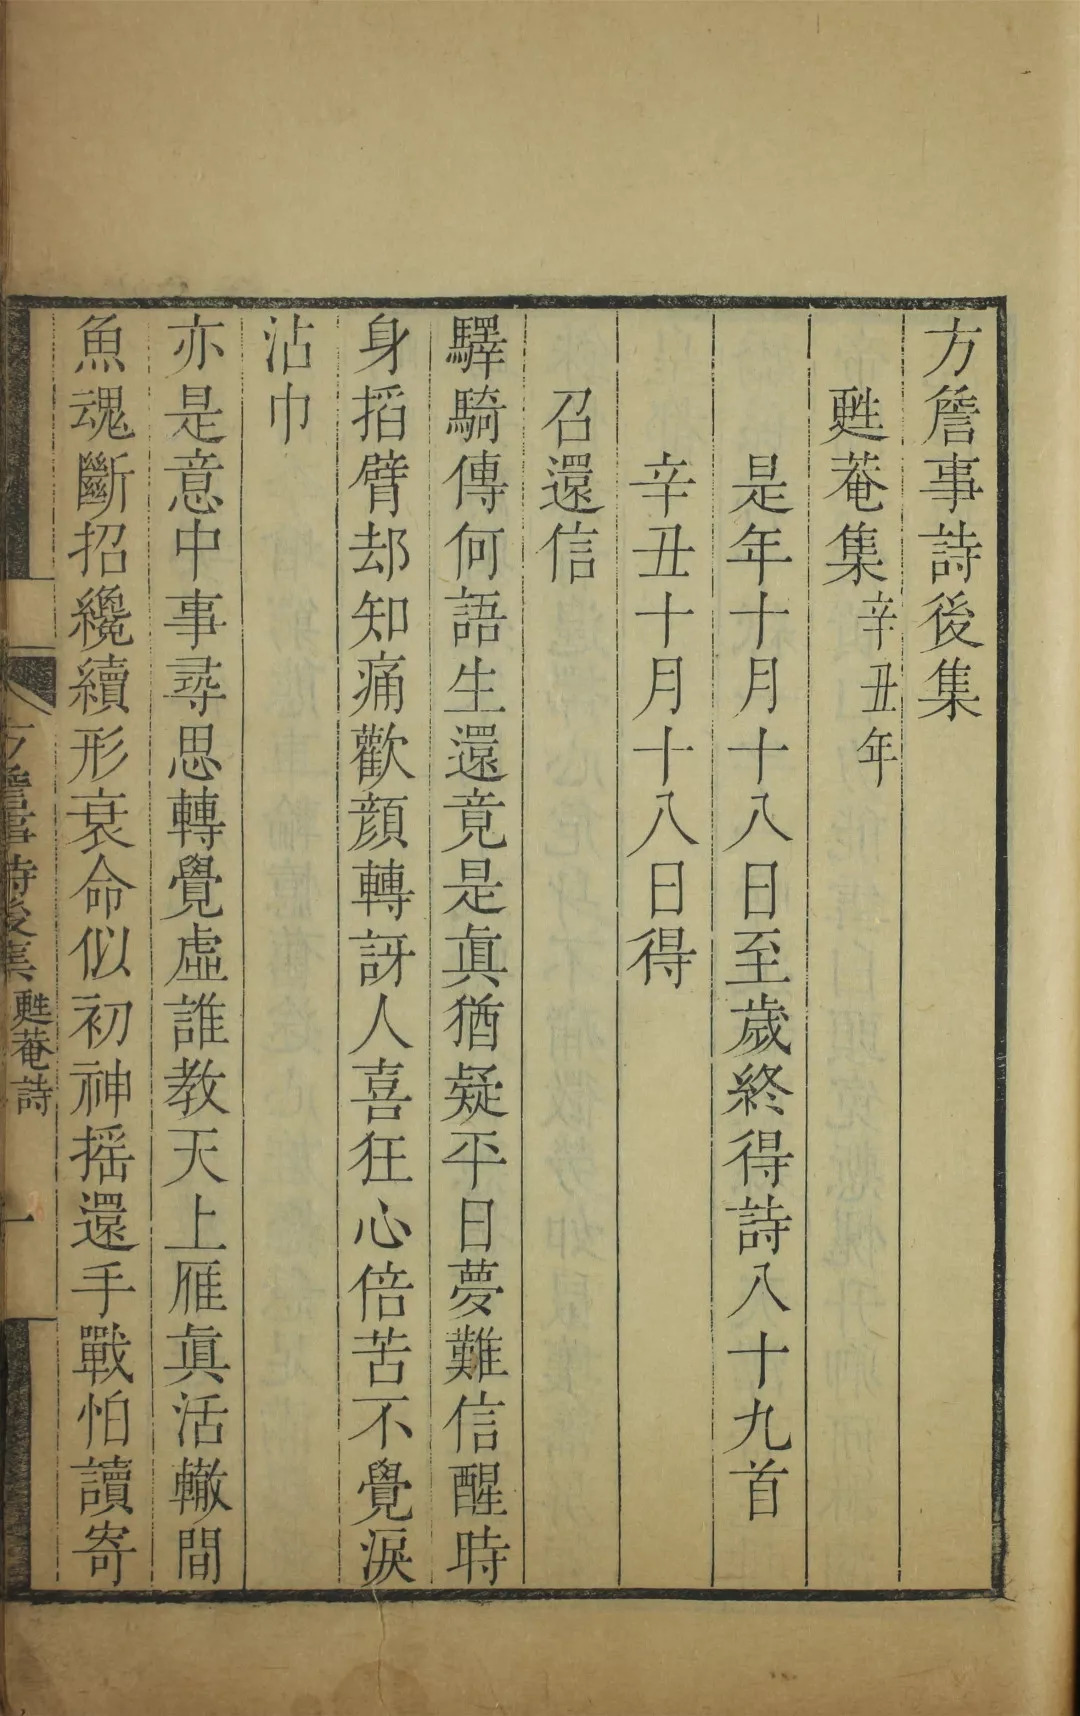 方詹事詩後集
甦菴集辛丑年
是年十月十八日至歲終得詩八十九首
辛丑十月十八日得
召還信
驛騎傳何語生還竟是眞猶疑平日夢難信醒時
身搯臂却知痛歡顔轉訝人喜狂心倍苦不覺淚
沾巾
亦是意中事尋思轉覺虛誰教天上雁眞活轍間
魚魂斷招纔續形衰命似初神摇還手戰怕讀寄
方詹事詩後集 甦菴詩 一